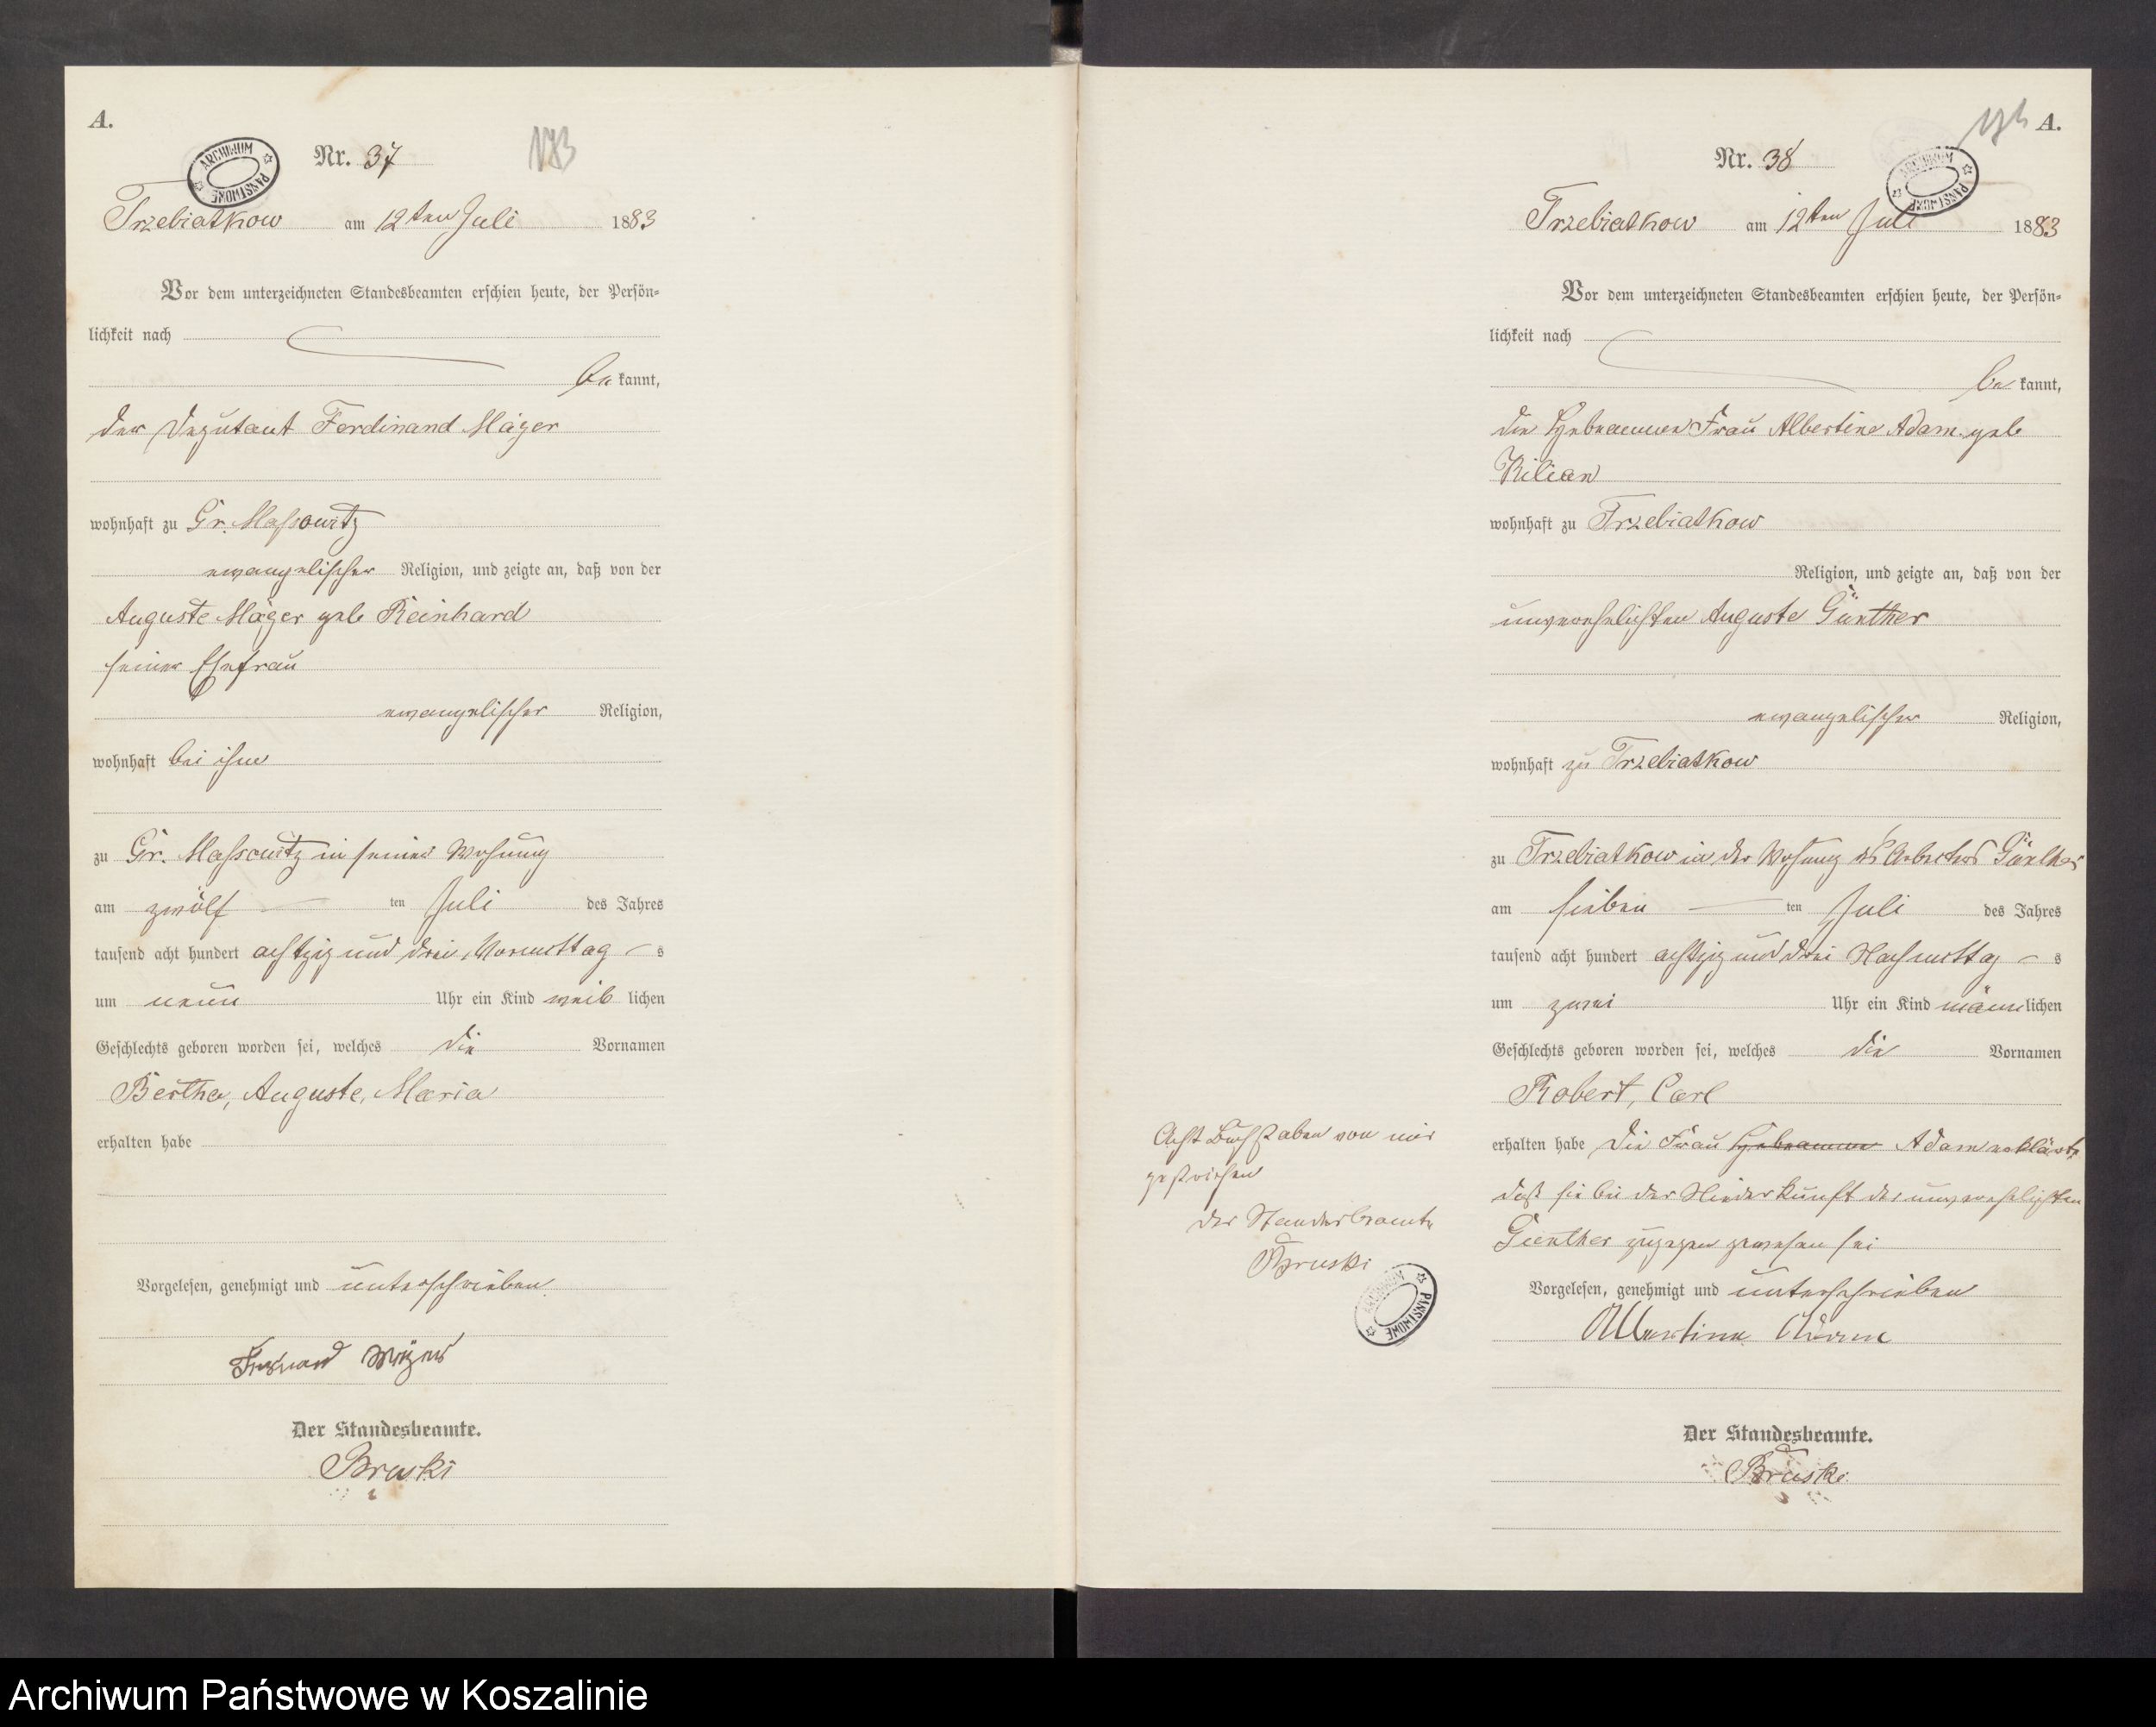 A.
ARCHIWUM PAŃSTWOWE
Nr. 37
Trzebiatkow am 12ten Juli 1883
Vor dem unterzeichneten Standesbeamten erschien heute, der Persön=
lichkeit nach
be kannt,
der Deputant Ferdinand Mäger
wohnhaft zu Gr. Massowitz
evangelischer Religion, und zeigte an, daß von der
Auguste Mäger geb Reinhard
seiner Ehefrau
evangelischer Religion,
wohnhaft bei ihm
zu Gr. Massowitz in seiner Wohnung
am zwölf ten Juli des Jahres
tausend acht hundert achtzig und drei, Vormittag s
um neun Uhr ein Kind weib lichen
Geschlechts geboren worden sei, welches die Vornamen
Bertha, Auguste, Maria
erhalten habe
Vorgelesen, genehmigt und unterschrieben
Mäger
Der Standesbeamte.
Bruski
A.
ARCHIWUM PAŃSTWOWE
Nr. 38
Trzebiatkow am 12ten Juli 1883
Vor dem unterzeichneten Standesbeamten erschien heute, der Persön=
lichkeit nach
be kannt,
die Hebeamme Frau Albertine Adam geb
Kilian
wohnhaft zu Trzebiatkow
Religion, und zeigte an, daß von der
unverehelichten Auguste Günther
evangelischer Religion,
wohnhaft zu Trzebiatkow
zu Trzebiatkow in der Wohnung des Arbeiters Günther
am sieben ten Juli des Jahres
tausend acht hundert achtzig und drei Nachmittag s
um zwei Uhr ein Kind männ lichen
Geschlechts geboren worden sei, welches die Vornamen
Robert, Carl
erhalten habe Die Frau Hebeamme Adam erklärte
daß sie bei der Niederkunft der unverehelichten
Günther zugegen gewesen sei
Vorgelesen, genehmigt und unterschrieben
Albertine Adam
Der Standesbeamte.
Bruski
Acht Buchstaben von mir
gestrichen
Der Standesbeamte
Bruski
ARCHIWUM PAŃSTWOWE
Archiwum Państwowe w Koszalinie